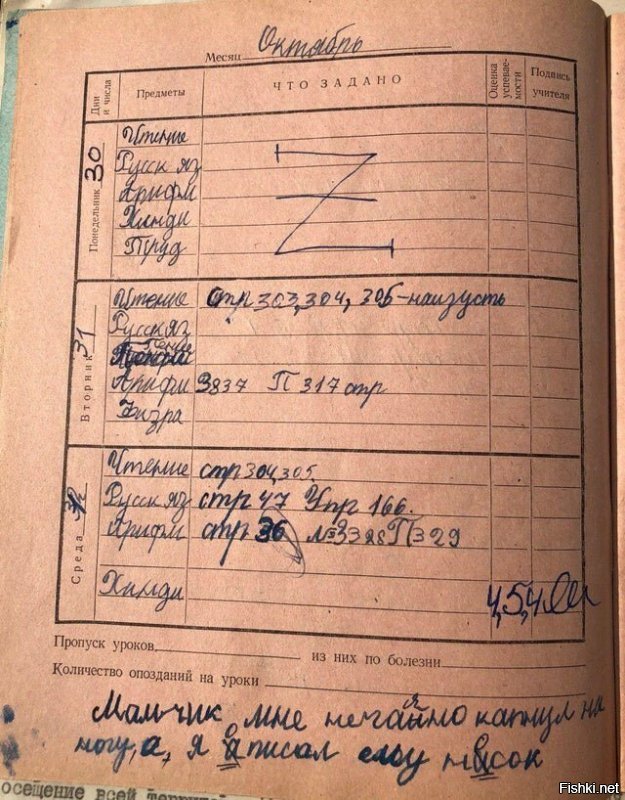 Месяц Октябрь
Дни и числа Предметы ЧТО ЗАДАНО Оценка успевае- мости Подпись учителя
Понедельник 30
Чтение
Русск яз
Арифм
Хинди
Труд
Вторник 31
Чтение стр 303, 304, 305 - наизусть
Русск яз
Пение
Арифм З 837 П 317 стр
Физра
Среда
Чтение стр 304, 305
Русск яз стр 47 Упр 166.
Арифм стр 36 № 3328 П 329
Хинди 4,5,4
Пропуск уроков из них по болезни
Количество опозданий на уроки
Мальчик мне нечайно капнул на
ногу, а, я аписал елоу нвисок
осещение всей террит
Fishki.net